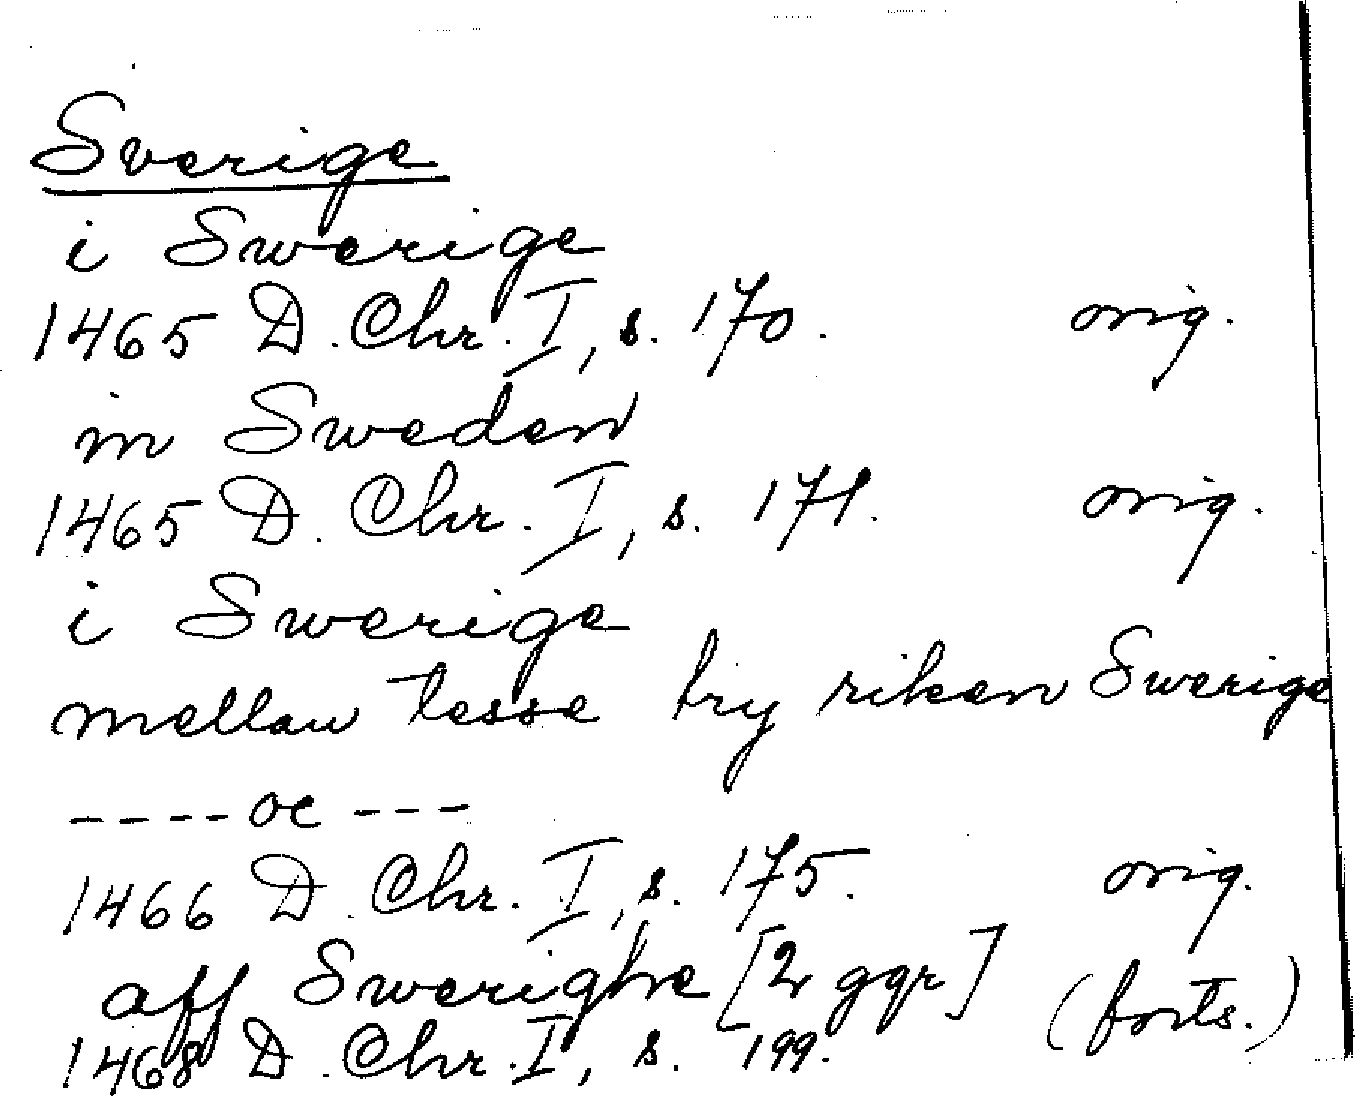 Sverige
i Swerige
1465 D. Chr. I, s. 170. orig.
in Sweden
1465 D. Chr. I, s. 171. orig.
i Swerige
mellan tesse try riken Swerige
---- oc ---
1466 D. Chr. I, s. 175. orig.
aff Swerighe [2 ggr] (forts.)
1468 D. Chr. I, s. 199.